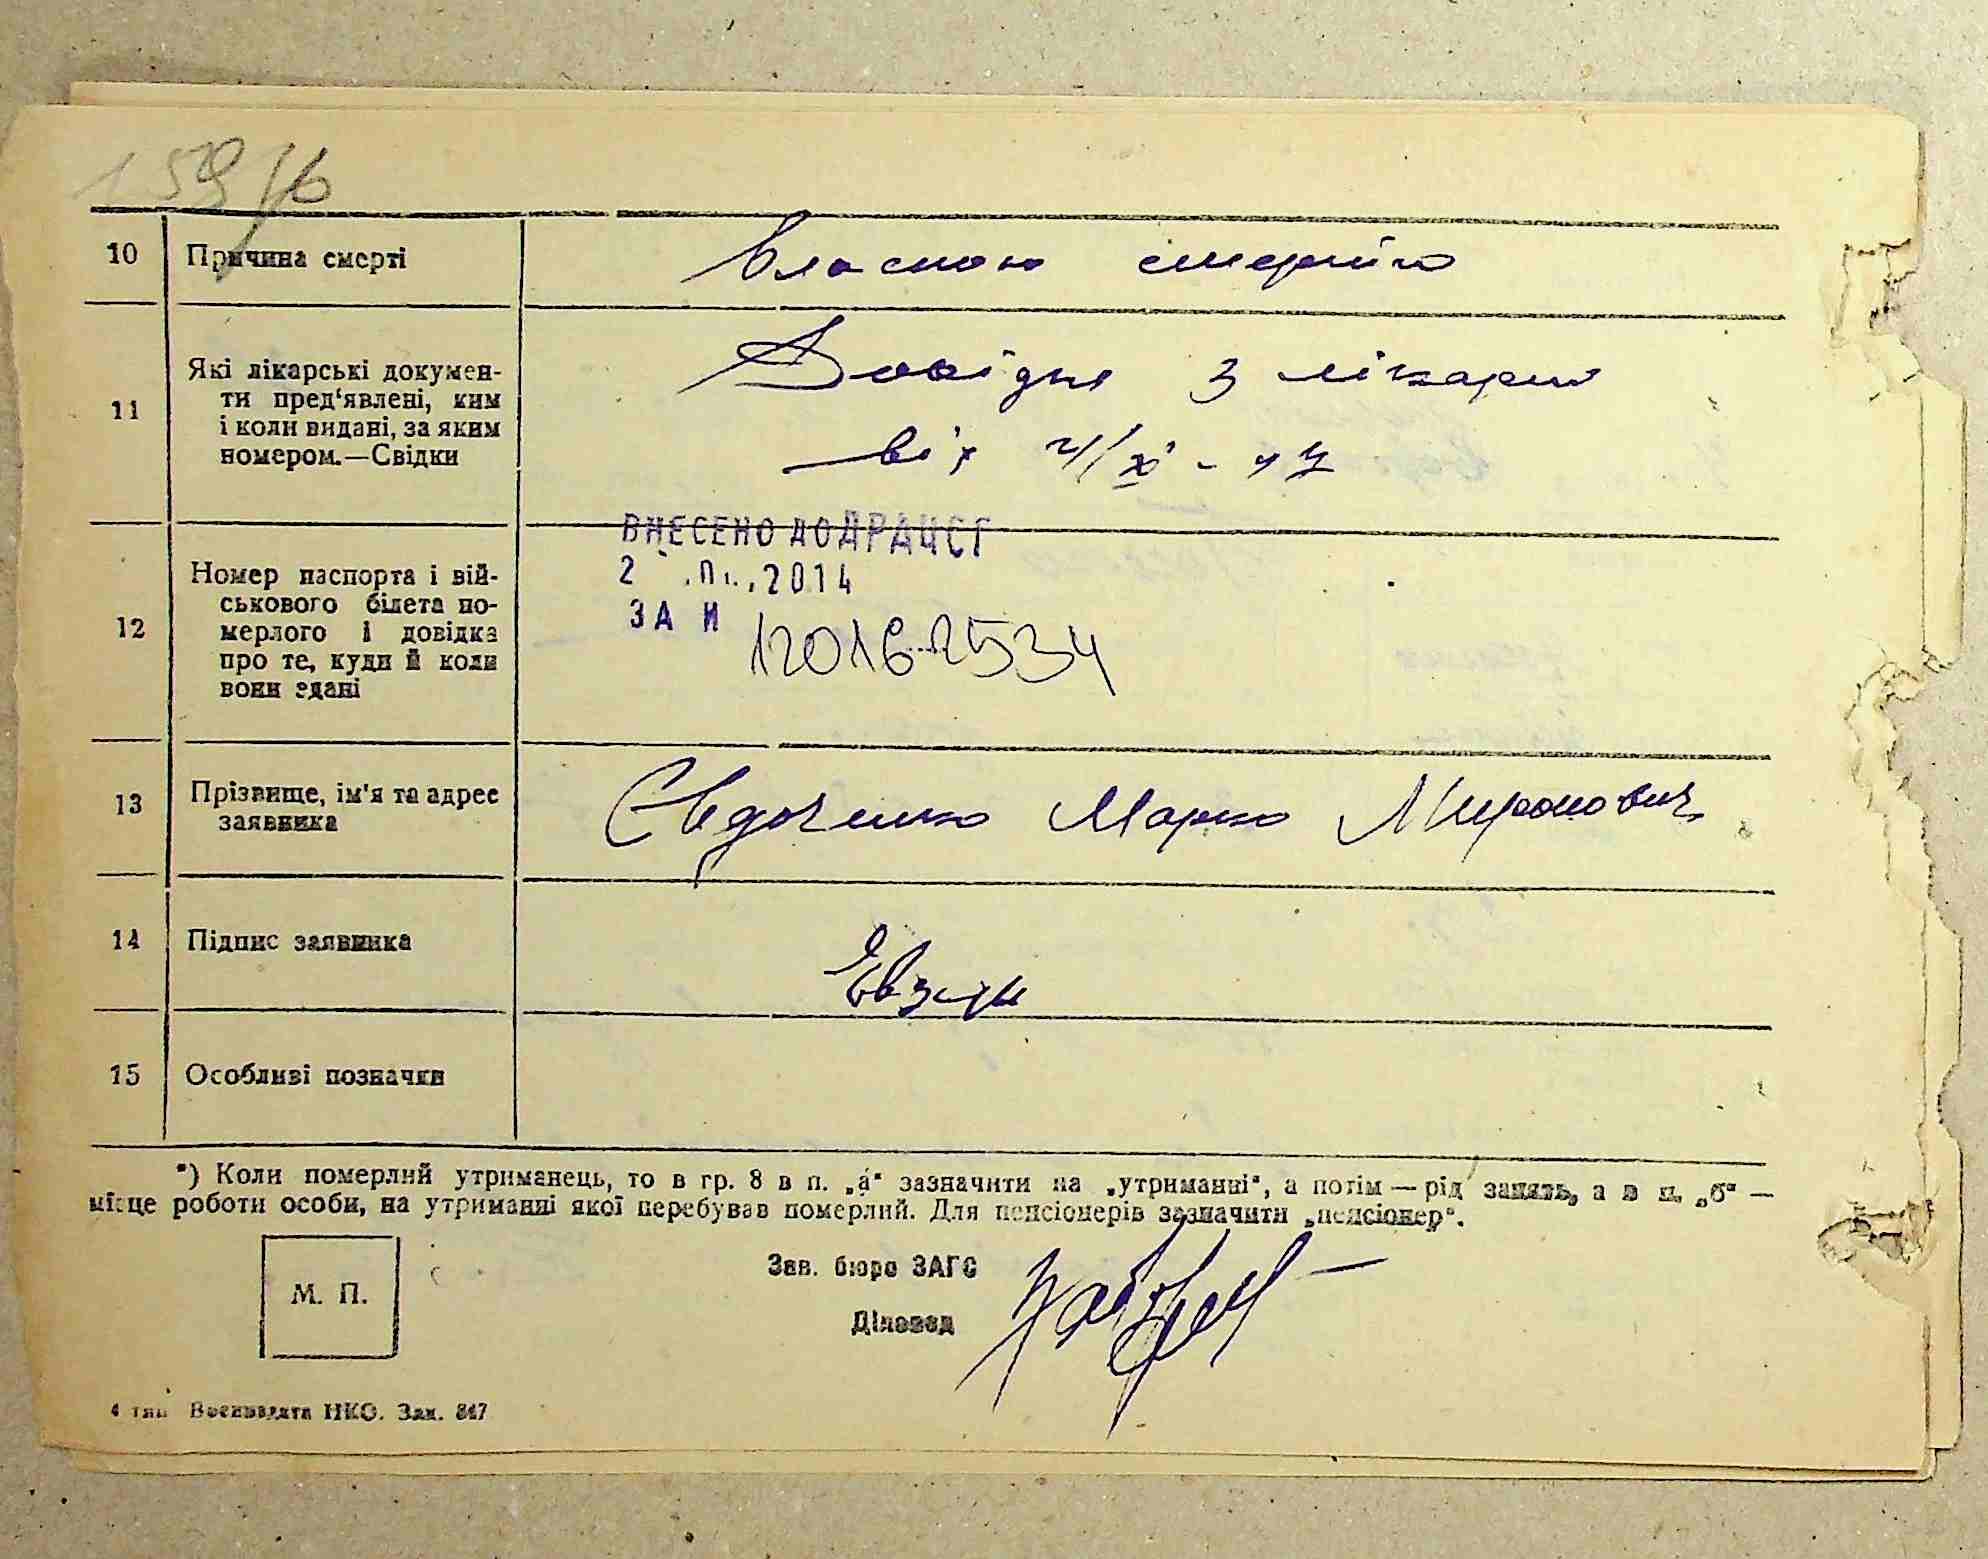 159
10 Причина смерті Власною смертю
11 Які лікарські докумен-
ти пред'явлені, ким
і коли видані, за яким
номером.—Свідки
Довідка з лікарні
від 4/XI - 47
ВНЕСЕНО ДО ДРАЦСГ
2 2014
ЗА №
12016-2534
12 Номер паспорта і вій-
ськового білета по-
мерлого і довідка
про те, куди й коли
вони здані
13 Прізвище, ім'я та адрес
заявника
Євдоченко Марко Миронович
14 Підпис заявника
15 Особливі позначки
*) Коли померлий утриманець, то в гр. 8 в п. „а" зазначити на „утриманні", а потім — рід занять, а в п. „б" —
місце роботи особи, на утриманні якої перебував померлий. Для пенсіонерів зазначити „пенсіонер".
М. П.
Зав. бюро ЗАГС
Діловод
4 тип Воениздата НКО. Зак. 847